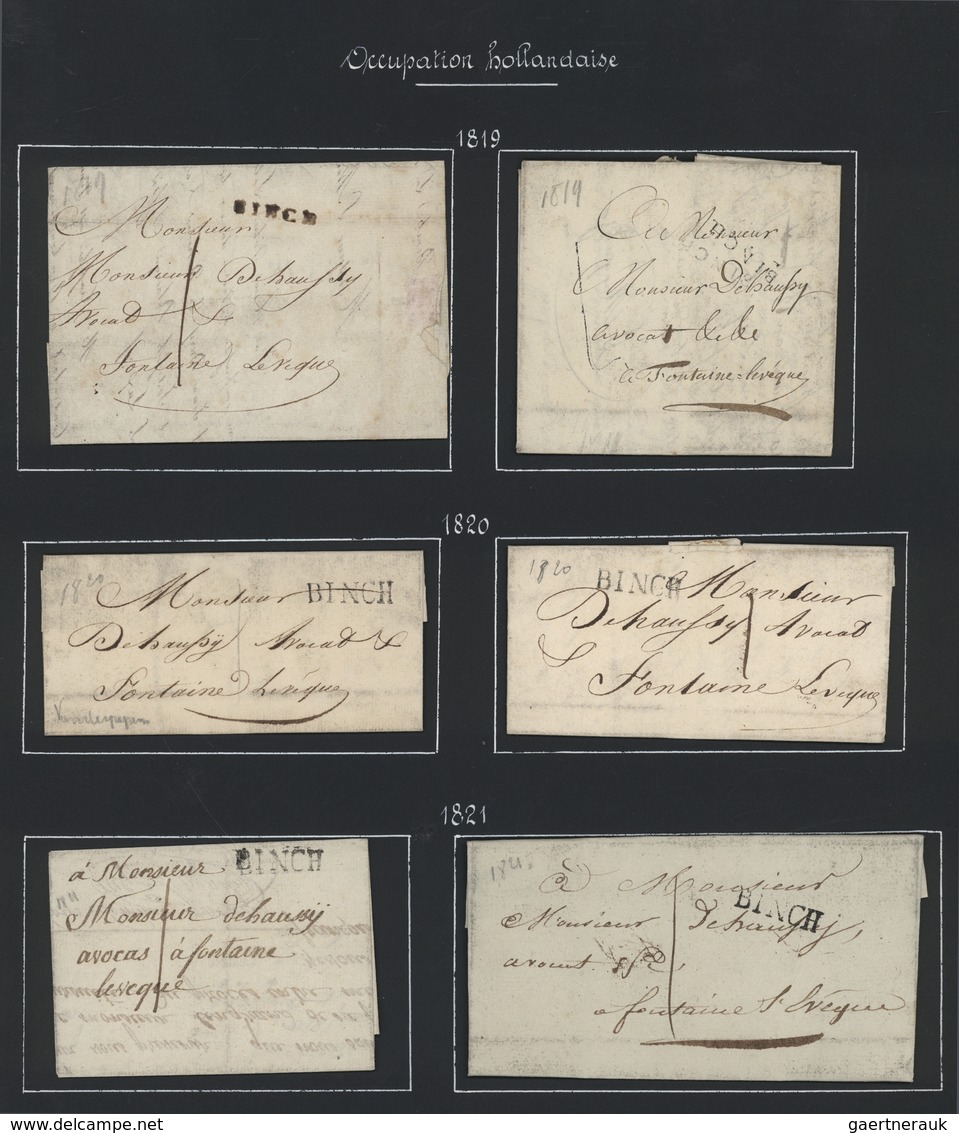 Occupation hollandaise
1819
1819
BINCH
Monsieur
Monsieur Dehaussy
Avocat &
Fontaine Leveque
1819
A Monsieur
BINCH
Monsieur Dehaussy
avocat &c &c
à Fontaine=levêque
1820
1820
BINCH
Monsieur
Dehaussÿ Avocat &
Fontaine Levêque
1820
BINCH
Monsieur
Dehaussy Avocat
&
Fontaine Leveque
1821
BINCH
à Monsieur
Monsieur dehaussij
avocas à fontaine
leveque
1821
à Monsieur
BINCH
Monsieur Dehaussij,
avocat
a fontaine l'evêque
www.delcampe.net
gaertnerauk